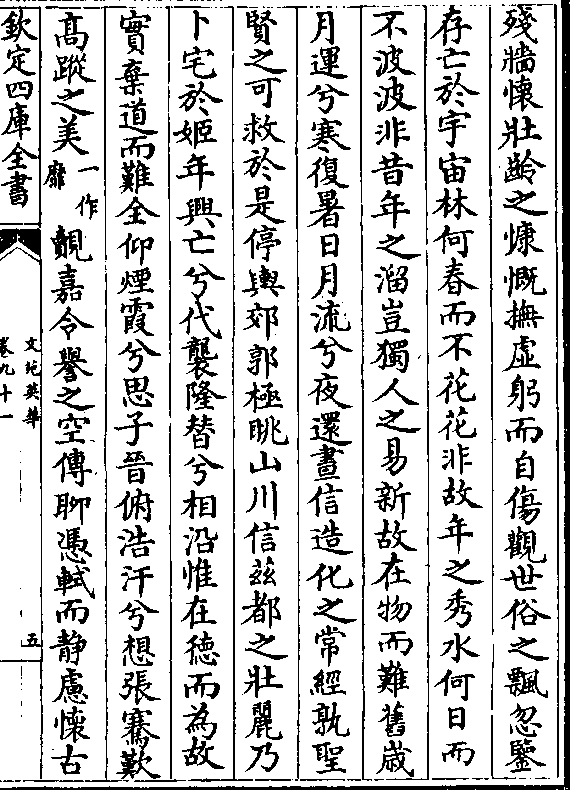 殘牆懷壯齡之慷慨撫虛躬而自傷觀世俗之飄忽鑒
存亡於宇宙林何春而不花花非故年之秀水何日而
不波波非昔年之溜豈獨人之易新故在物而難舊歲
月運兮寒復暑日月流兮夜還晝信造化之常經孰聖
賢之可救於是停輿郊郭極眺山川信茲都之壯麗乃
卜宅於姬年興亡兮代襲隆替兮相沿惟在德而為故
實棄道而難全仰煙霞兮思子晉俯浩汗兮想張騫歎
高蹤之美一作靡覿嘉令譽之空傳聊憑軾而靜慮懷古
欽定四庫全書
文苑英華
卷九十一
五